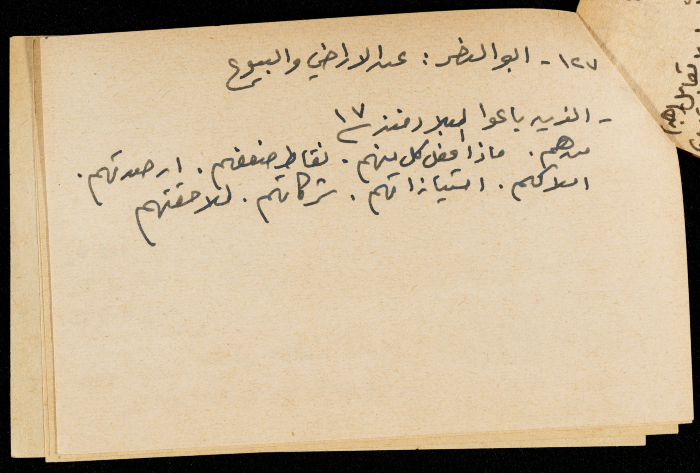 ١٢٧ - ابو النضر: عن الاراضي والبيوع
- الذين باعوا البلاد منذ ١٧
من هم. ماذا فعل كل منهم. نقاط ضعفهم. ارصدتهم.
املاكهم. امتيازاتهم. شركاتهم. لملاحقتهم
تقابل